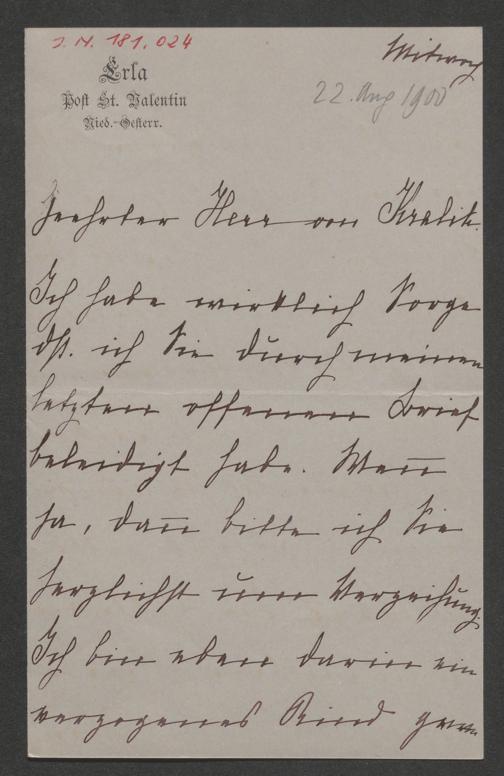 J. N. 181.024
Erla
Post St. Valentin
Nied.-Oesterr.
Mitwoch
22. Aug 1900
Geehrter Herr von Kralik.
Ich habe wirklich Sorge
dß. ich Sie durch meinen
letzten offenen Brief
beleidigt habe. Wenn
ja, dann bitte ich Sie
herzlichst um Verzeihung.
Ich bin eben darin ein
verzogenes Kind